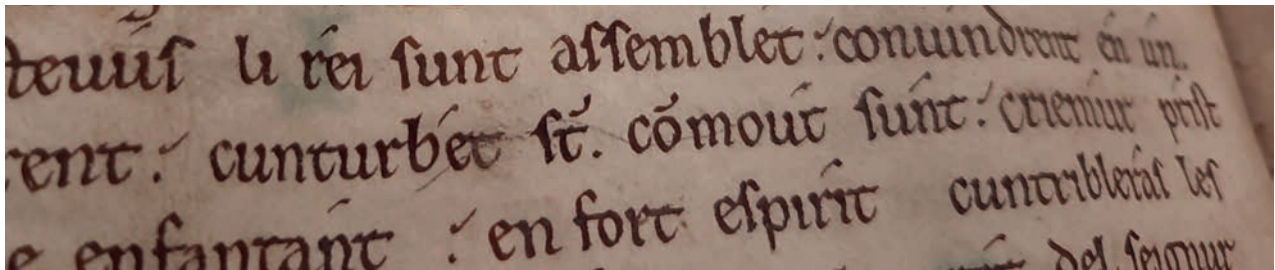 li rei sunt assemblet : conuindrent en un.
rent : cunturbet st̄. cōmout sunt : criemur prist
enfantant : en fort espirit cuntribleras les
del seignur